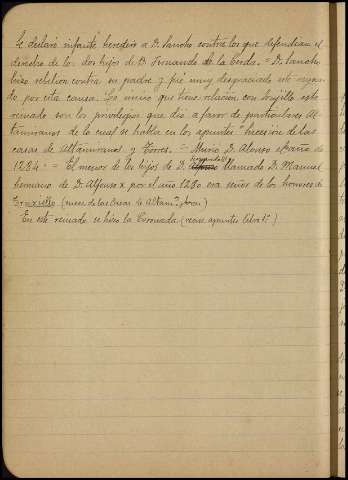 Se declaró infante heredero a D. Sancho contra los que defendian el
derecho de los dos hijos de D. Fernando de la Cerda. = D. Sancho
hizo rebelion contra su padre y fué muy desgraciado este reina-
do por esta causa. Lo único que tiene relación con Trujillo este
reinado son los privilegios que dió a favor de particulares Al-
tamiranos de lo cual se habla en los apuntes "Sucesion de las
casas de Altamiranos y Torres. = Murió D. Alonso el año de
1284. = El menor de los hijos de D. Fernando III llamado D. Manuel
hermano de D. Alfonso X por el año 1280 era señor de los honores de
Truxiello
En este reinado se hizo la Coronada (véase apuntes libro 1º)